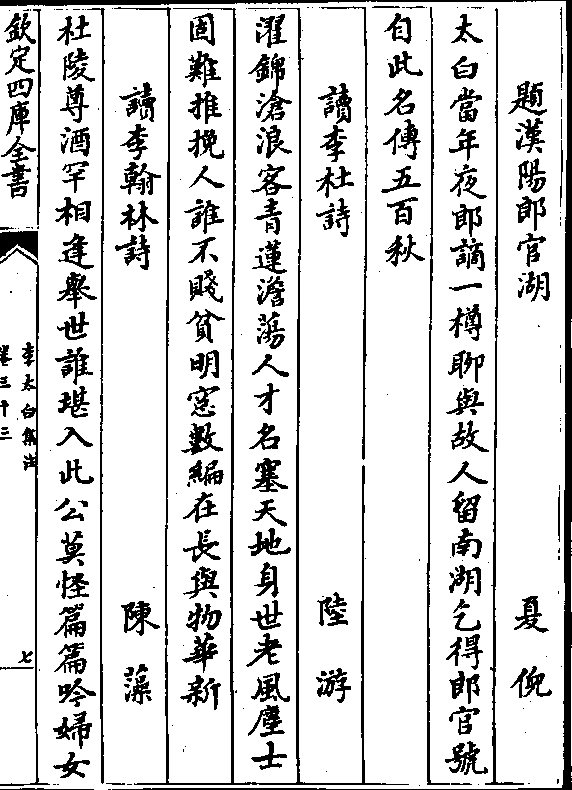 題漢陽郎官湖 夏倪
太白當年夜郎謫一樽聊與故人留南湖乞得郎官號
自此名傳五百秋
讀李杜詩 陸游
濯錦滄浪客青蓮澹蕩人才名塞天地身世老風塵士
固難推挽人誰不賤貧明窓數編在長與物華新
讀李翰林詩 陳藻
杜陵尊酒罕相逢舉世誰堪入此公莫怪篇篇吟婦女
欽定四庫全書
李太白集注
卷三十三
七